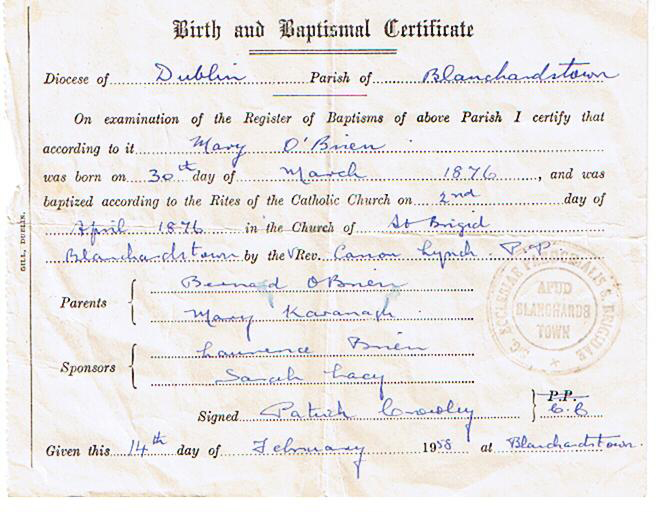 Birth and Baptismal Certificate
Diocese of Dublin Parish of Blanchardstown
On examination of the Register of Baptisms of above Parish I certify that
according to it Mary O'Brien
was born on 30th day of March 1876, and was
baptized according to the Rites of the Catholic Church on 2nd day of
April 1876 in the Church of St Brigid
Blanchardstown by the V Rev. Canon Lynch P.P.
Parents
Bernard O'Brien
Mary Kavanagh
Sponsors
Laurence Brien
Sarah Lacy
Signed Patrick Crowley P.P.
C.C.
Given this 14th day of February 1958 at Blanchardstown.
GILL, DUBLIN.
ECCLESIAE PAROCHIALIS S. BRIGIDAE
APUD
BLANCHARDS
TOWN